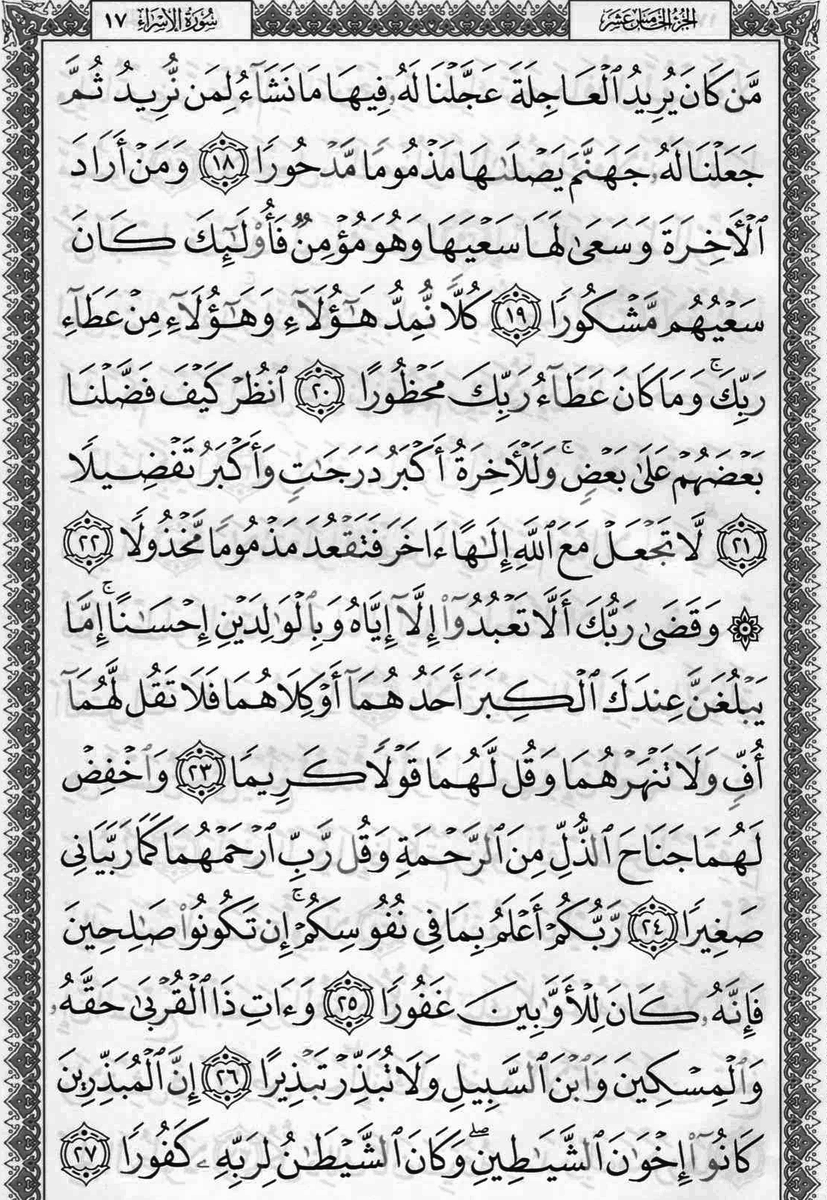 الجزء الخامس عشر
سورة الإسراء ١٧
مَّن كَانَ يُرِيدُ ٱلْعَاجِلَةَ عَجَّلْنَا لَهُۥ فِيهَا مَا نَشَآءُ لِمَن نُّرِيدُ ثُمَّ
جَعَلْنَا لَهُۥ جَهَنَّمَ يَصْلَىٰهَا مَذْمُومًا مَّدْحُورًا ١٨ وَمَنْ أَرَادَ
ٱلْأَخِرَةَ وَسَعَىٰ لَهَا سَعْيَهَا وَهُوَ مُؤْمِنٌ فَأُو۟لَـٰٓئِكَ كَانَ
سَعْيُهُم مَّشْكُورًا ١٩ كُلًّا نُّمِدُّ هَـٰٓؤُلَآءِ وَهَـٰٓؤُلَآءِ مِنْ عَطَآءِ
رَبِّكَ ۚ وَمَا كَانَ عَطَآءُ رَبِّكَ مَحْظُورًا ٢٠ ٱنظُرْ كَيْفَ فَضَّلْنَا
بَعْضَهُمْ عَلَىٰ بَعْضٍ ۚ وَلَلْأَخِرَةُ أَكْبَرُ دَرَجَـٰتٍ وَأَكْبَرُ تَفْضِيلًا
٢١ لَّا تَجْعَلْ مَعَ ٱللَّهِ إِلَـٰهًا ءَاخَرَ فَتَقْعُدَ مَذْمُومًا مَّخْذُولًا ٢٢
۞ وَقَضَىٰ رَبُّكَ أَلَّا تَعْبُدُوٓا۟ إِلَّآ إِيَّاهُ وَبِٱلْوَٰلِدَيْنِ إِحْسَـٰنًا ۚ إِمَّا
يَبْلُغَنَّ عِندَكَ ٱلْكِبَرَ أَحَدُهُمَآ أَوْ كِلَاهُمَا فَلَا تَقُل لَّهُمَآ
أُفٍّ وَلَا تَنْهَرْهُمَا وَقُل لَّهُمَا قَوْلًا كَرِيمًا ٢٣ وَٱخْفِضْ
لَهُمَا جَنَاحَ ٱلذُّلِّ مِنَ ٱلرَّحْمَةِ وَقُل رَّبِّ ٱرْحَمْهُمَا كَمَا رَبَّيَانِى
صَغِيرًا ٢٤ رَّبُّكُمْ أَعْلَمُ بِمَا فِى نُفُوسِكُمْ ۚ إِن تَكُونُوا۟ صَـٰلِحِينَ
فَإِنَّهُۥ كَانَ لِلْأَوَّٰبِينَ غَفُورًا ٢٥ وَءَاتِ ذَا ٱلْقُرْبَىٰ حَقَّهُۥ
وَٱلْمِسْكِينَ وَٱبْنَ ٱلسَّبِيلِ وَلَا تُبَذِّرْ تَبْذِيرًا ٢٦ إِنَّ ٱلْمُبَذِّرِينَ
كَانُوٓا۟ إِخْوَٰنَ ٱلشَّيَـٰطِينِ ۖ وَكَانَ ٱلشَّيْطَـٰنُ لِرَبِّهِۦ كَفُورًا ٢٧